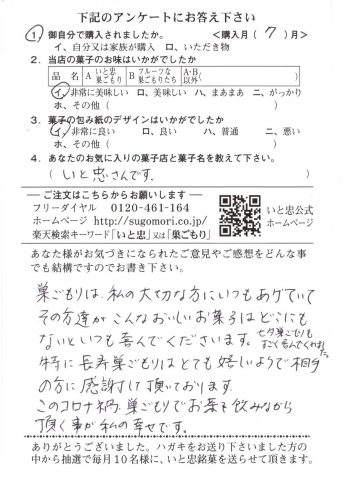 下記のアンケートにお答え下さい
1. 御自分で購入されましたか。 <購入月( 7 )月>
イ、自分又は家族が購入 ロ、いただき物
2. 当店の菓子のお味はいかがでしたか
品 名 A いと忠巣ごもり B フルーツな巣ごもりたち A・B以外( )
イ、非常に美味しい ロ、美味しい。 ハ、まあまあ ニ、がっかり
ホ、その他( )
3. 菓子の包み紙のデザインはいかがでしたか
イ、非常に良い ロ、良い ハ、普通 ニ、悪い
ホ、その他( )
4. あなたのお気に入りの菓子店と菓子名を教えて下さい。
( いと忠さんです。 )
ご注文はこちらからお願いします
フリーダイヤル 0120-461-164
ホームページ http://sugomori.co.jp/
楽天検索キーワード「いと忠」又は「巣ごもり」
いと忠公式
ホームページ
あなた様がお気づきになられたご意見やご感想をどんな事
でも結構ですのでお書き下さい。
巣ごもりは、私の大切な方にいつもあげていて
その方達が こんなおいしいお菓子はどこにも
ないといつも喜んでくださいます。 七夕巣ごもりも
すごく喜んでくれました
特に長寿巣ごもりはとても嬉しいようで
の方に感謝して頂いております。
このコロナ禍、巣ごもりでお茶を飲みながら
頂く事が私の幸せです。
ありがとうございました。ハガキをお送り下さいました方の
中から抽選で毎月10名様に、いと忠銘菓を送らせて頂きます。